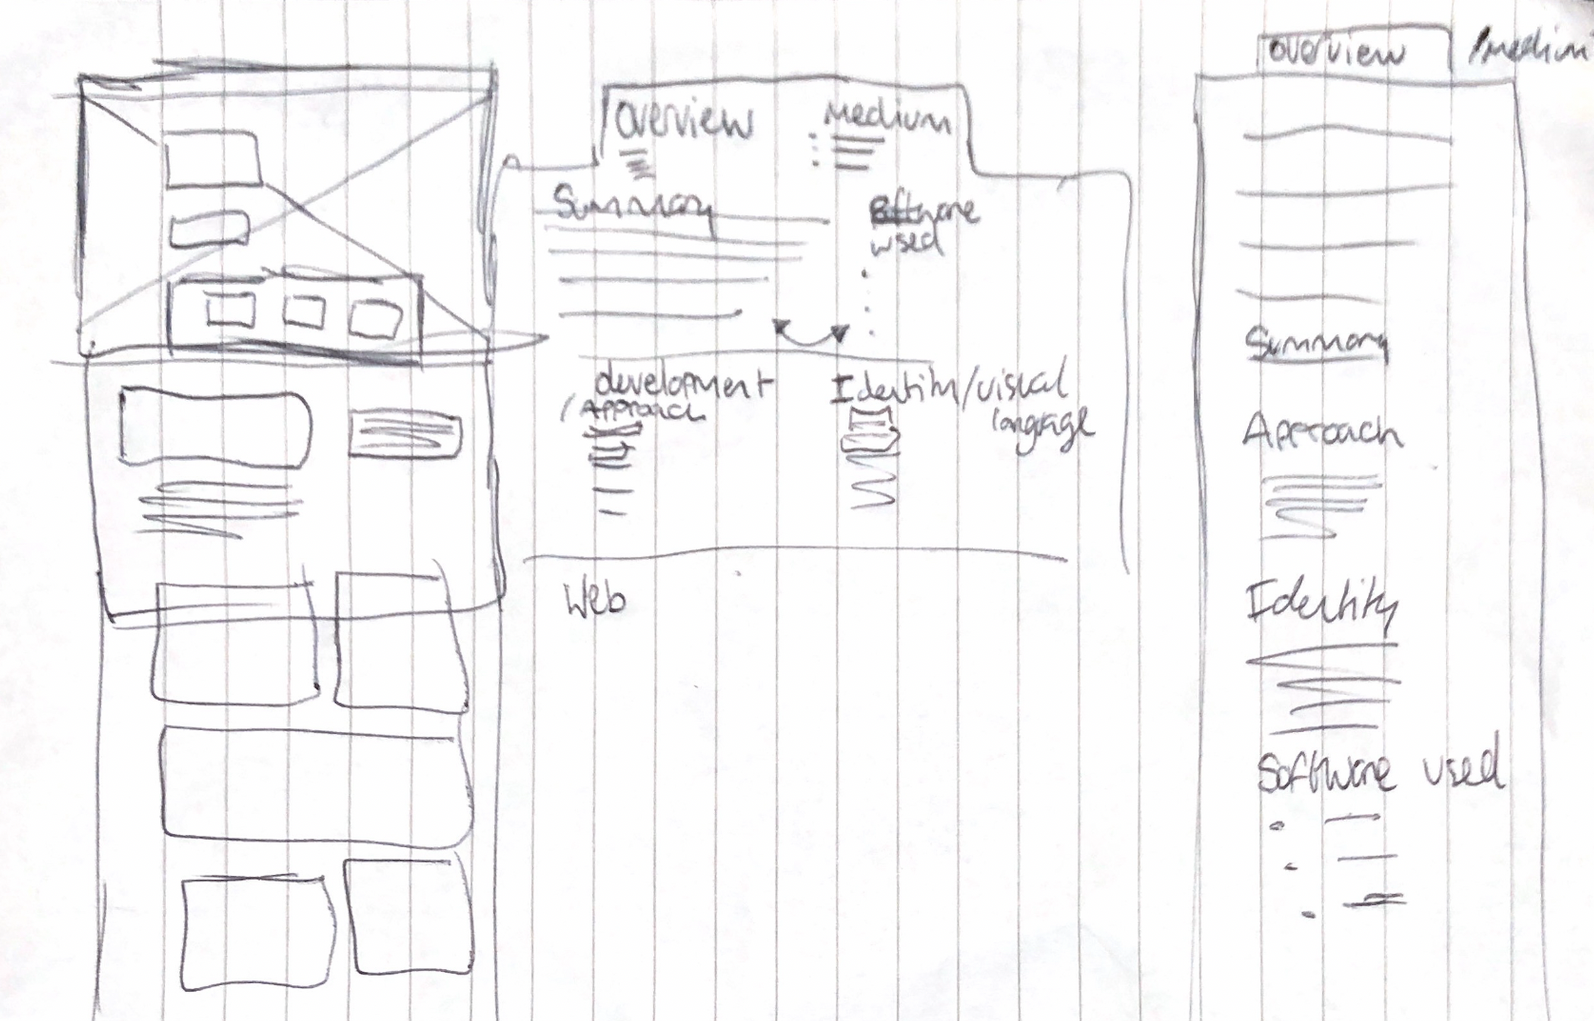 Overview
Medium
Summary
Software
used
development
/Approach
Identity/visual
language
Web
Overview
/medium
Summary
Approach
Identity
Software used